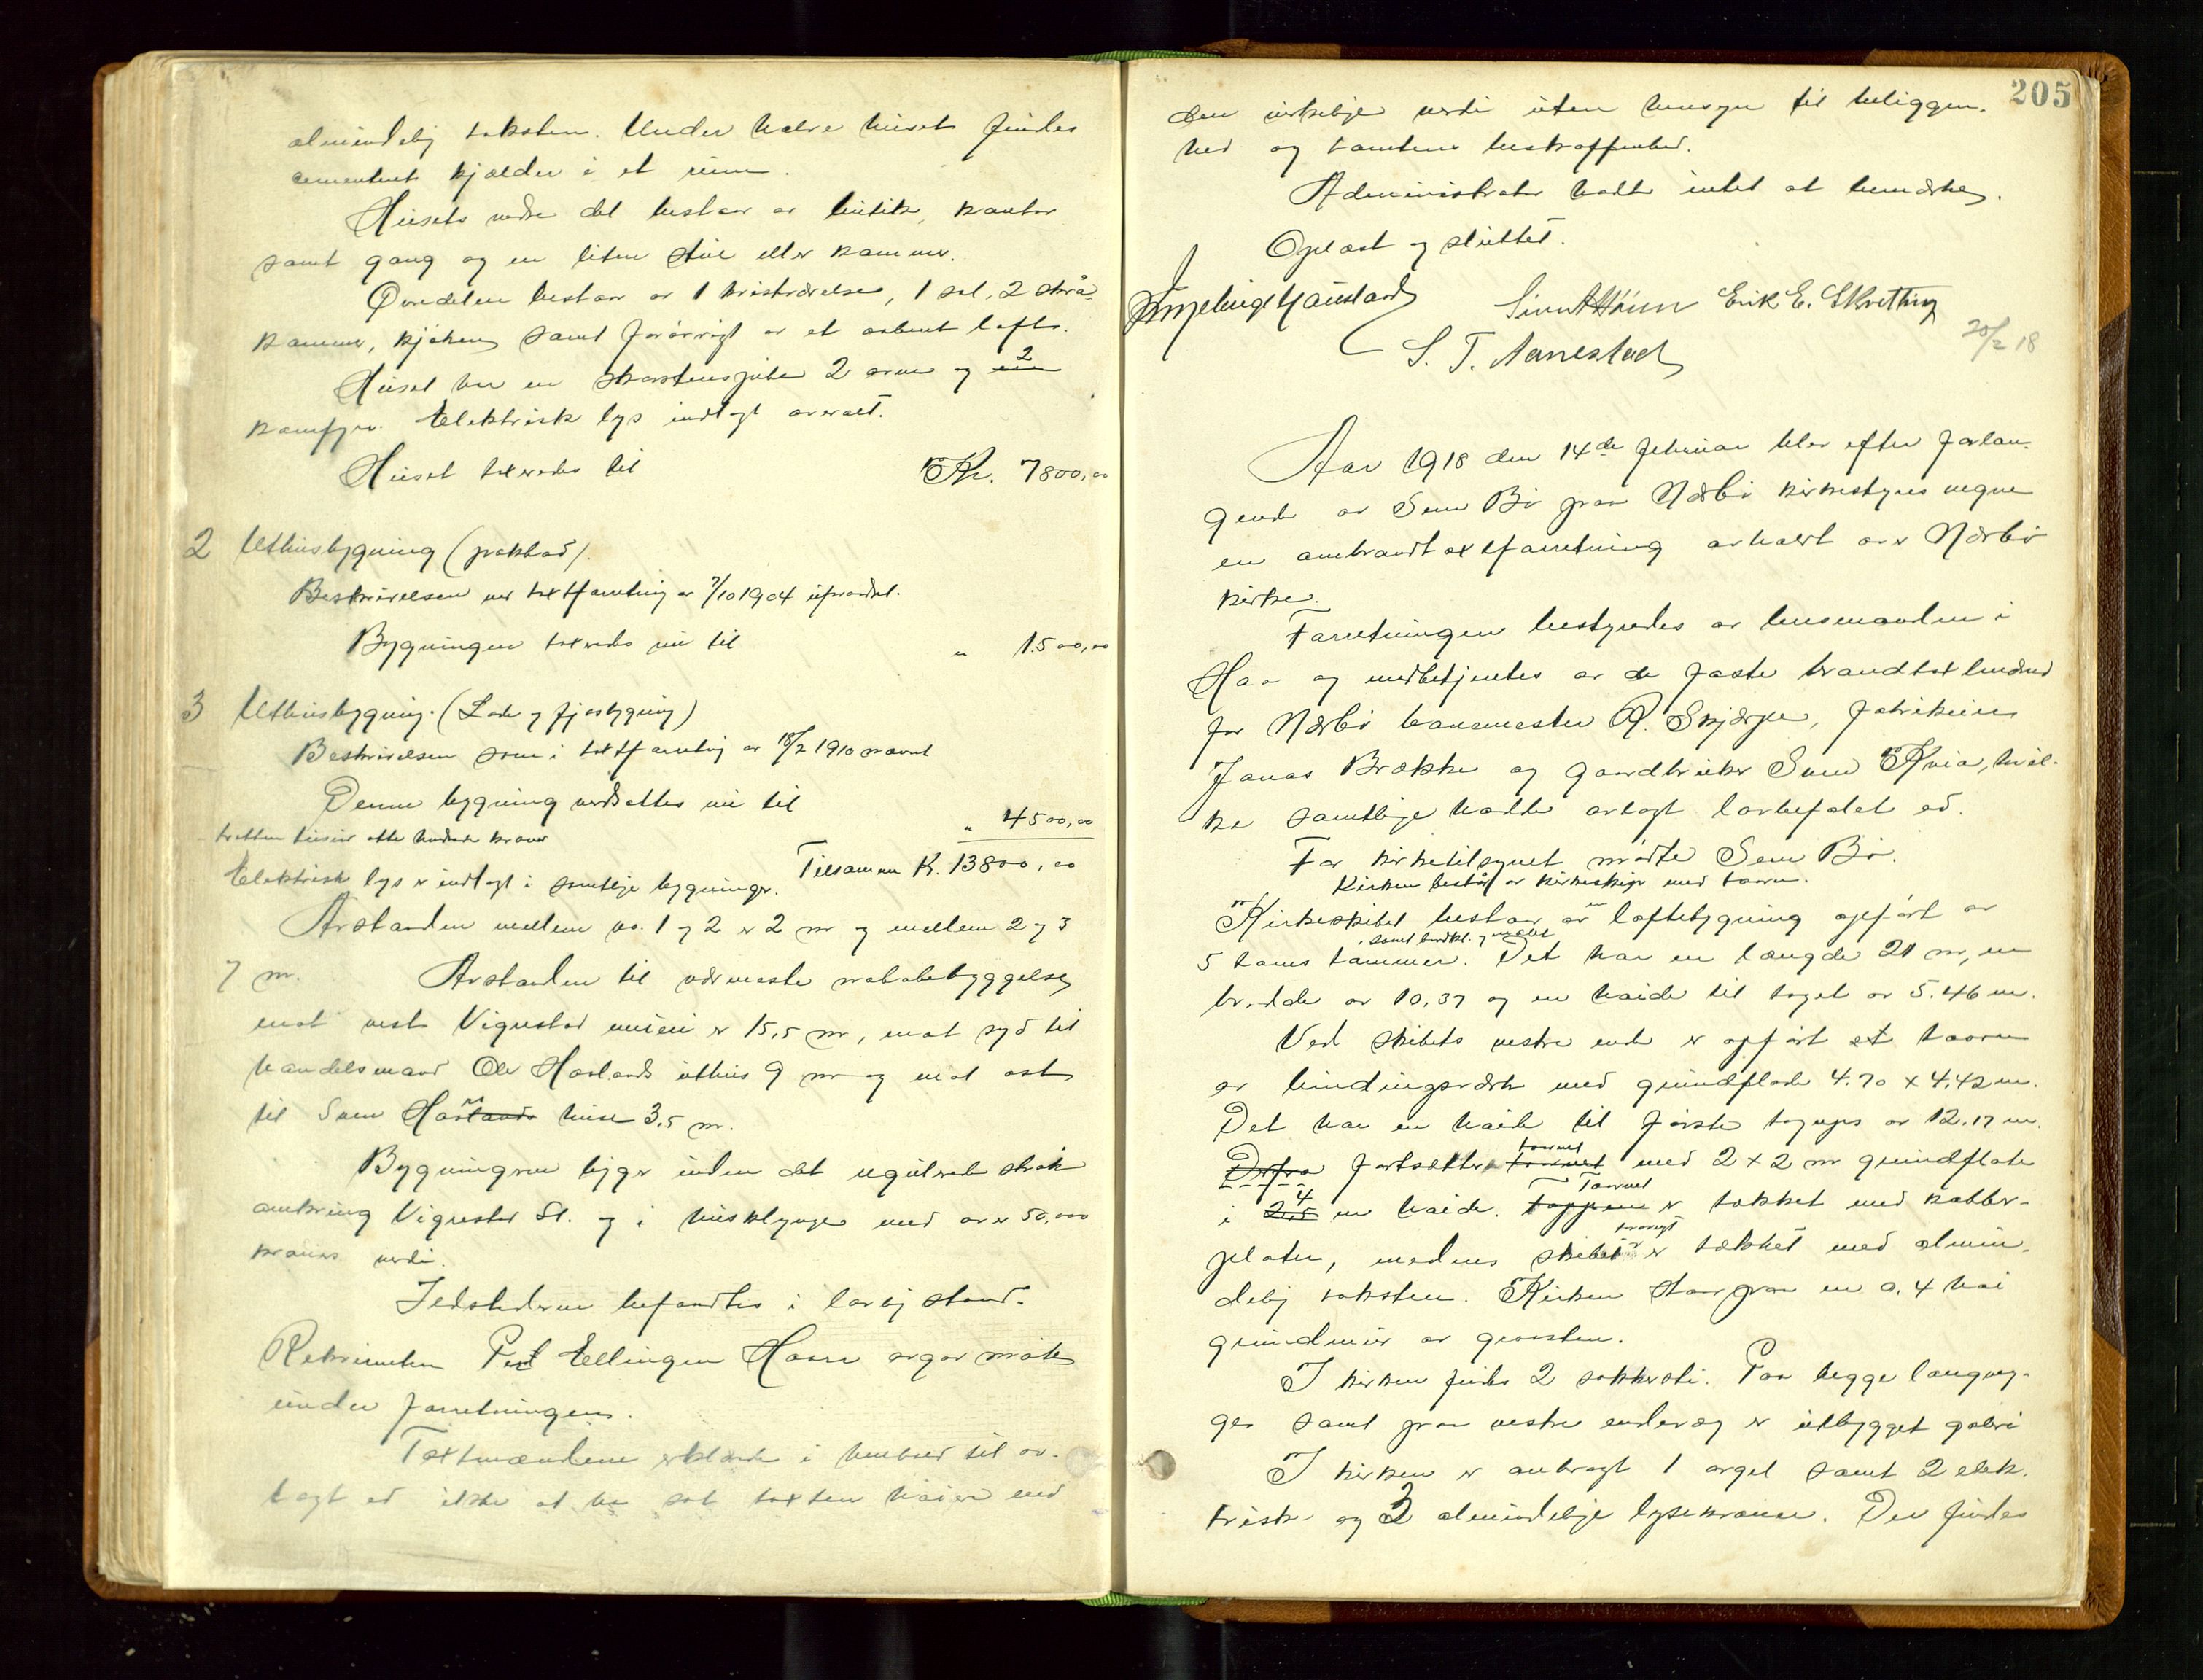 almindelig taksten. Under halve huset findes
cementeret kjælder i et rum.
Husets nedre del bestaar av butik, kontor
samt gang og en liten stue eller kammer.
Øvredelen bestaar av 1 kvistværelse, 1 sal, 2 skrå-
kammer, kjøken samt forøvrigt av et aabent loft.
Huset har en skorstenspibe 2 ovne og 2
komfyrer. Elektrisk lys indlagt overalt.
Huset takseredes til Kr. 7800,00
2 Uthusbygning (pakbod).
Beskrivelsen ved takstforretning av 7/10 1904 uforandret.
Bygningen takseredes nu til " 1500,00
3 Uthusbygning. (Lade og fjøsbygning)
Beskrivelsen som i takstforretning av 18/2 1910 nævnt
Denne bygning verdsættes nu til " 4500,00
tretten tusen otte hundrede kroner
Tilsammen K. 13800,00
Elektrisk lys er indlagt i samtlige bygninger.
Avstanden mellem no. 1 og 2 er 2 m og mellem 2 og 3
7 m. Avstanden til nærmeste nabobebyggelse
mot vest Vigrestad meieri er 15,5 m, mot syd til
handelsmand Ole Hovlands uthus 9 m og mot ost
til Sven huse 3,5 m.
Bygningerne ligger inden det regulerede strøk
omkring Vigrestad St. og i husklynge med over 50,000
kroners verdi.
Ildstederne befandtes i lovlig stand.
Rekvirenten Ellingsen avgav møte
under forretningen.
Takstmændene erklærte i henhold til av-
lagt ed ikke at ha sat taksten høiere end
205
den virkelige verdi uten hensyn til beliggen-
hed og tomtens beskaffenhed.
Administrator hadde intet at bemærke.
Oplæst og sluttet.
Erik E. Skretting
S. T. Aanestad
20/2 18
Aar 1918 den 14de februar blev efter forlan-
gende av Sven Bø paa Nærbø kirkestyres vegne
en ombrandtakstforretning avholdt over Nærbø
kirke.
Forretningen bestyredes av lensmanden i
Haa og medbetjentes av de faste brandtakstmænd
for Nærbø banemester R. Skjærpe, fabrikeier
Jonas Brække og gaardbruker Sven Kvia, hvil-
ke samtlige hadde avlagt lovbefalet ed.
For kirketilsynet møtte Sven Bø.
Kirken består av kirkeskip med taarn.
Kirkeskibet bestaar av en loftsbygning opført av
5 toms tømmer, samt bordkl. og malet. Det har en længde 21 m, en
bredde av 10,37 og en høide til taget av 5.46 m.
Ved skibets vestre ende er opført et taarn
av bindingsverk med grundflade 4.70 x 4.42 m.
Det har en høide til første tagryg av 12.17 m.
Derfra fortsætter taarnet med 2 x 2 m grundflate
i 4 m høide. Taarnet er tækket med kobber-
plater, medens skibet forøvrigt er tækket med almin-
delig taksten. Kirken staar paa en 0,4 høi
grundmur av graasten.
I kirken findes 2 sakristi. Paa begge langvæg-
ger samt paa vestre endevæg er utbygget galleri
I kirken er anbragt 1 orgel samt 2 elek-
trisk og 3 almindelige lysekroner. Der findes